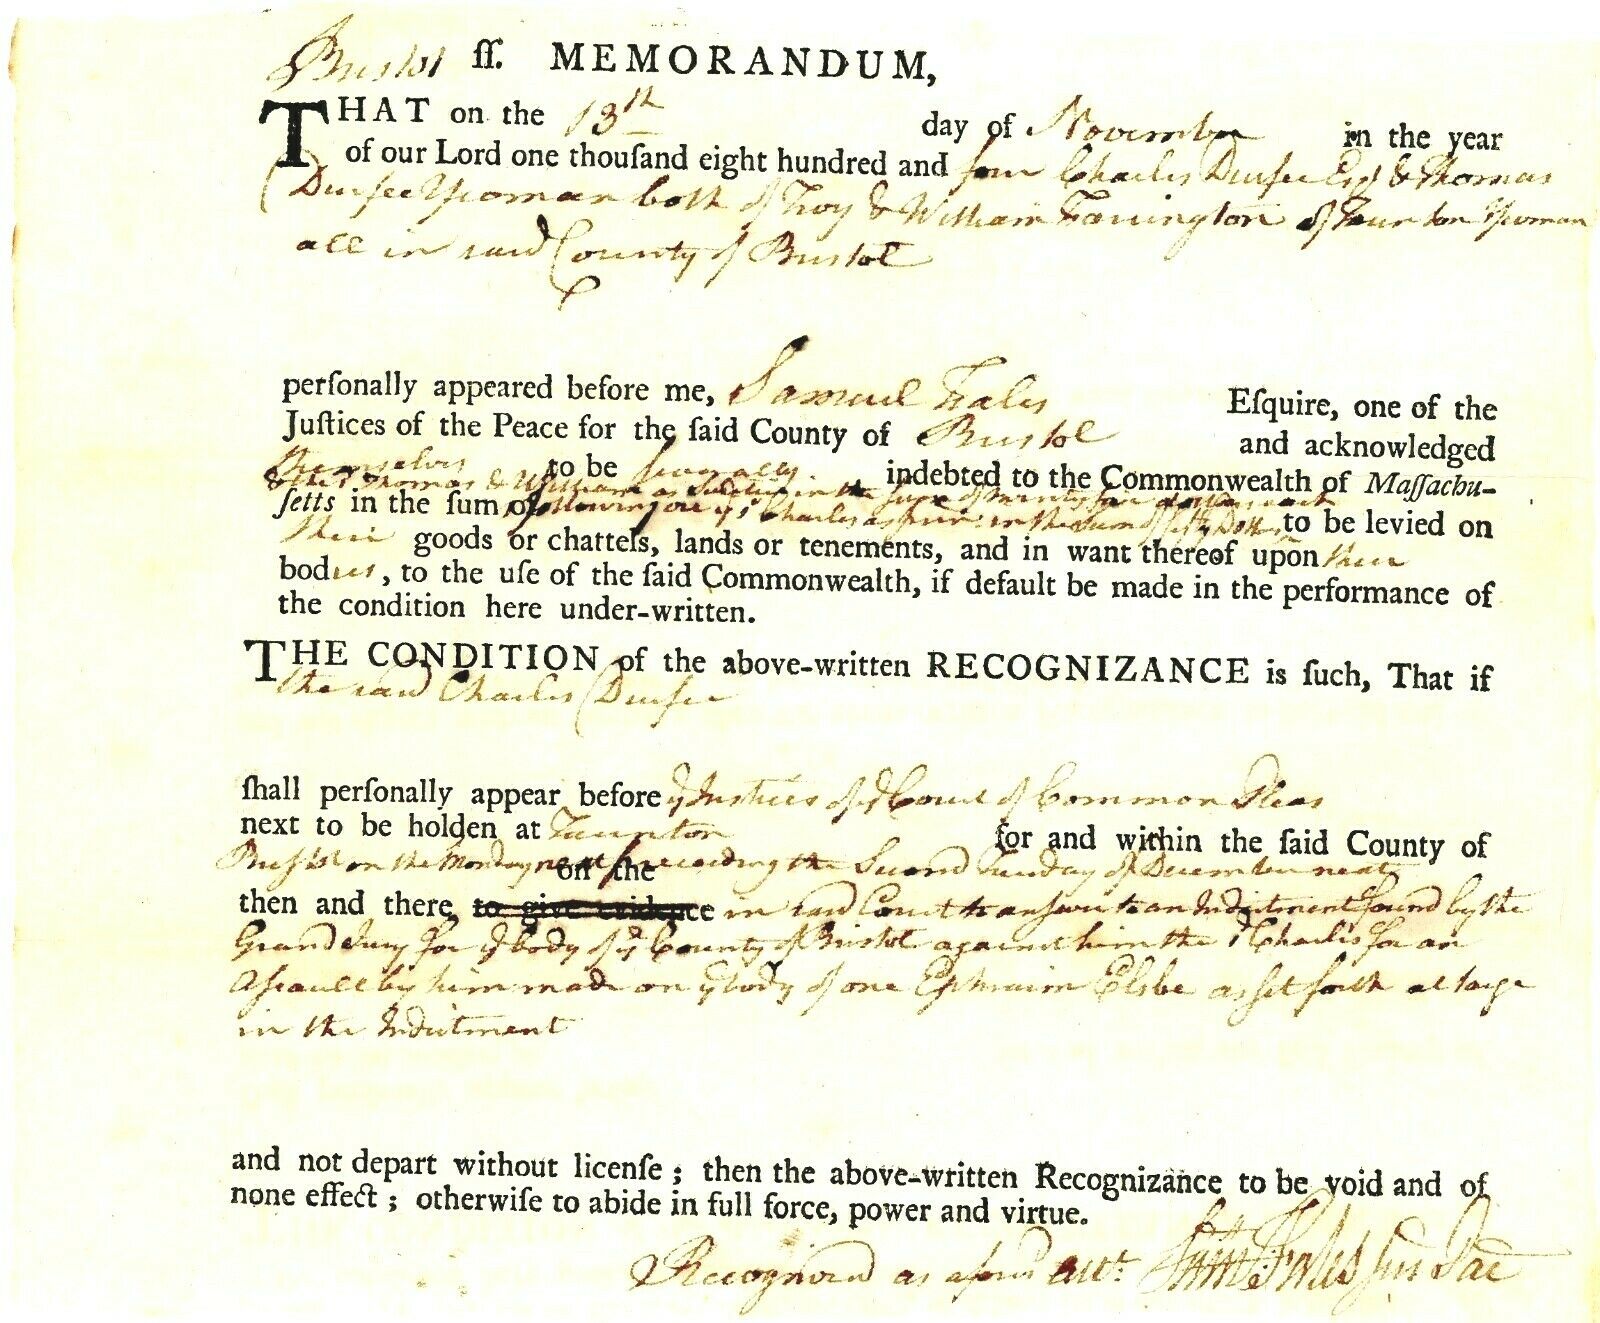 Bristol ſſ. MEMORANDUM,
THAT on the 13th day of November in the year
of our Lord one thouſand eight hundred and four Charles Durfee Esqr & Thomas
Durfee Yeoman both of Troy & William Farrington of Taunton Yeoman
all in said County of Bristol
perſonally appeared before me, Samuel Fales Eſquire, one of the
Juſtices of the Peace for the ſaid County of Bristol and acknowledged
themselves to be severally indebted to the Commonwealth of Maſſachu-
& the sd Thomas & William as Sureties in the sum of twenty five dollars each
ſetts in the ſum of following viz ye sd Charles as prin: in the sum of fifty Dolls to be levied on
their goods or chattels, lands or tenements, and in want thereof upon their
bodies, to the uſe of the ſaid Commonwealth, if default be made in the performance of
the condition here under-written.
THE CONDITION of the above-written RECOGNIZANCE is ſuch, That if
the said Charles Durfee
ſhall perſonally appear before ye Justices of ye Court of Common Pleas
next to be holden at Taunton for and within the ſaid County of
Bristol on the Monday next preceeding the Second Tuesday of December next
on the
then and there, to give evidence in said Court to answer to an Indictment found by the
Grand Jury for ye body of ye County of Bristol against him the sd Charles for an
Assault by him made on ye body of one Ephraim Elsbe as set forth at large
in the Indictment
and not depart without licenſe ; then the above-written Recognizance to be void and of
none effect ; otherwiſe to abide in full force, power and virtue.
Recognized as aforesd Att: Samll Fales Jus Pac